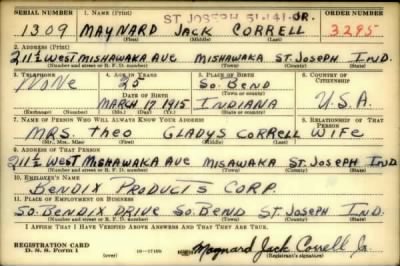 SERIAL NUMBER 1. NAME (Print) ST JOSEPH 51-141-JR. ORDER NUMBER
1309 MAYNARD JACK CORRELL 3295
(First) (Middle) (Last)
2. ADDRESS (Print)
211½ WEST MISHAWAKA AVE MISHAWAKA ST. JOSEPH IND.
(Number and street or R. F. D. number) (Town) (County) (State)
3. TELEPHONE 4. AGE IN YEARS 5. PLACE OF BIRTH 6. COUNTRY OF CITIZENSHIP
NONE 25 SO. BEND
DATE OF BIRTH (Town or county)
MARCH 17 1915 INDIANA U.S.A.
(Exchange) (Number) (Mo.) (Day) (Yr.) (State or country)
7. NAME OF PERSON WHO WILL ALWAYS KNOW YOUR ADDRESS 8. RELATIONSHIP OF THAT PERSON
MRS. Theo GLADYS CORRELL WIFE
(Mr., Mrs., Miss) (First) (Middle) (Last)
9. ADDRESS OF THAT PERSON
211½ WEST MISHAWAKA AVE MISAWAKA ST. JOSEPH IND
(Number and street or R. F. D. number) (Town) (County) (State)
10. EMPLOYER'S NAME
BENDIX PRODUCTS CORP.
11. PLACE OF EMPLOYMENT OR BUSINESS
SO. BENDIX DRIVE SO. BEND ST. JOSEPH IND.
(Number and street or R. F. D. number) (Town) (County) (State)
I AFFIRM THAT I HAVE VERIFIED ABOVE ANSWERS AND THAT THEY ARE TRUE.
REGISTRATION CARD
D. S. S. Form 1 Maynard Jack Correll Jr.
(Registrant's signature)